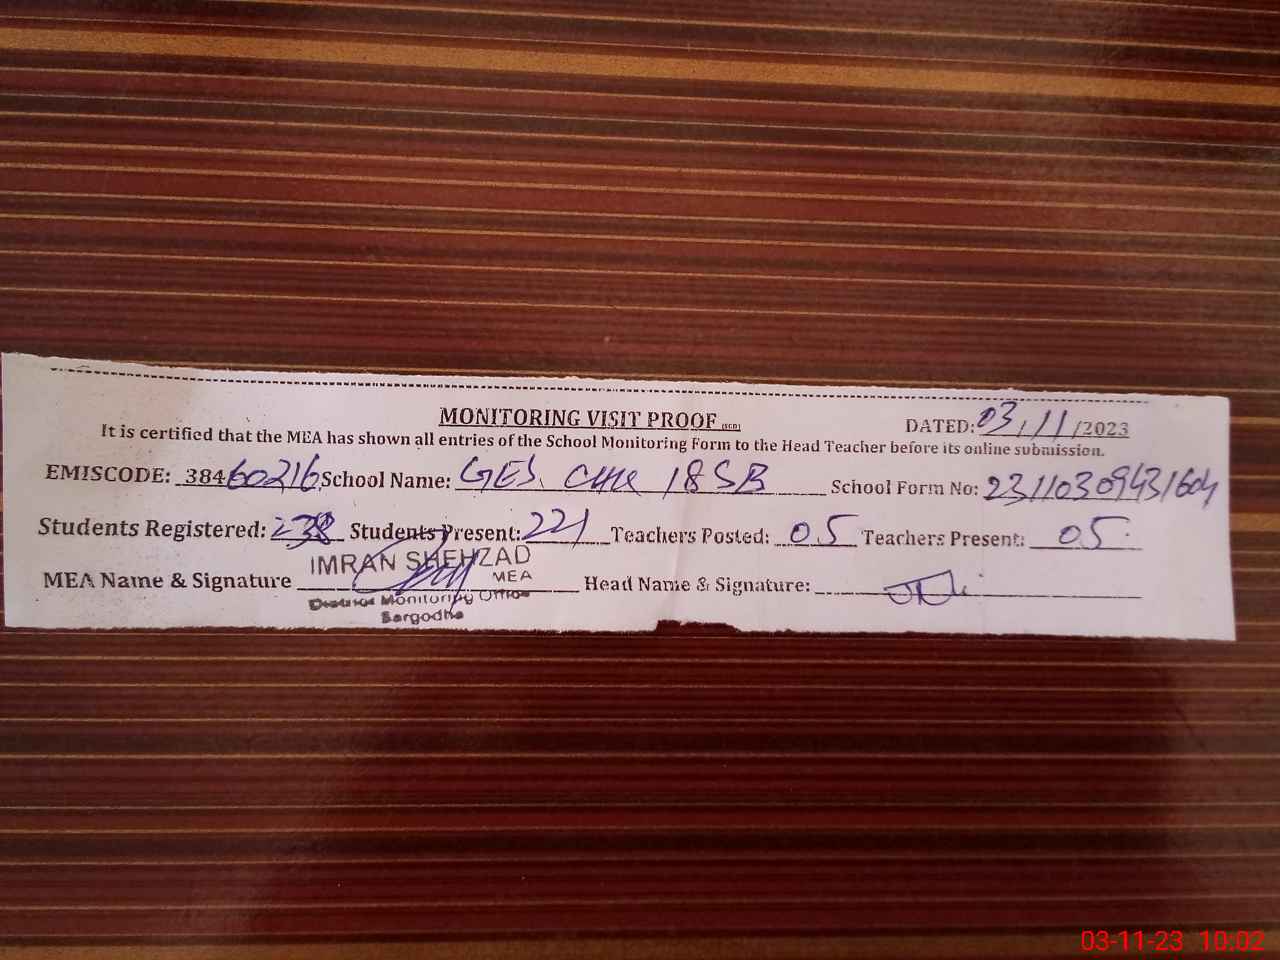 MONITORING VISIT PROOF
DATED: 03/11/2023
It is certified that the MEA has shown all entries of the School Monitoring Form to the Head Teacher before its online submission.
EMISCODE: 38460216 School Name: GES. CHK 18SB School Form No: 23110309431604
Students Registered: 238 Students Present: 221 Teachers Posted: 05 Teachers Present: 05
MEA Name & Signature IMRAN SHEHZAD Head Name & Signature:
MEA
District Monitoring Office
Sargodha
03-11-23 10:02